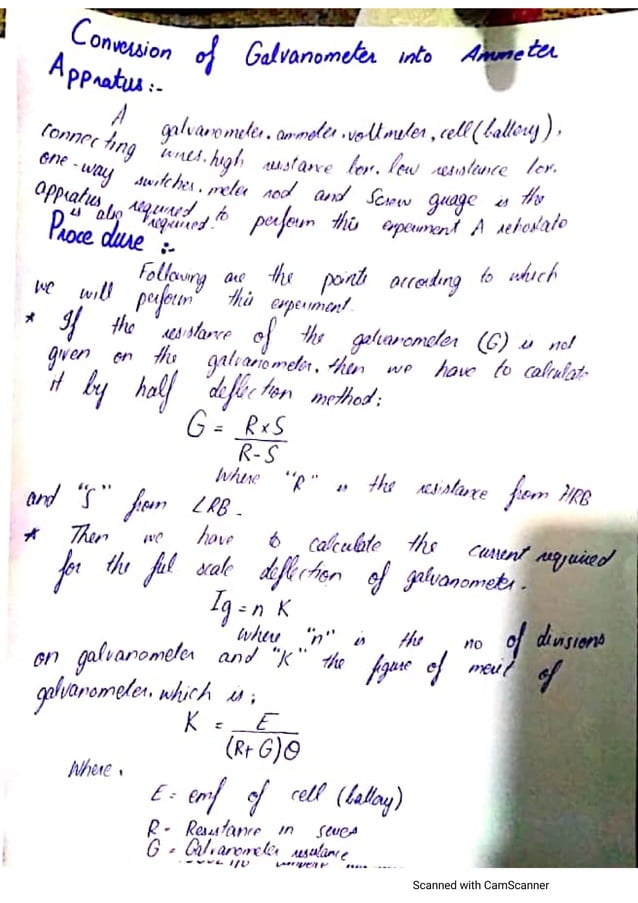 Conversion of Galvanometer into Ammeter
Appratus :-
A galvanometer, ammeter, voltmeter, cell (battery),
connecting wires, high resistance box, low resistance box,
one-way switches, meter rod and screw guage is the
appratus required to perform this experiment A rehostate
is also required.
Procedure :-
Following are the points according to which
we will perform this experiment.
* If the resistance of the galvanometer (G) is not
given on the galvanometer, then we have to calculate
it by half deflection method:
G = R×S
R-S
Where "R" is the resistance from HRB
and "S" from LRB.
* Then we have to calculate the current required
for the ful scale deflection of galvanometer.
Ig = n K
where "n" is the no of divisions
on galvanometer and "K" the figure of merit of
galvanometer, which is;
K = E
(R+G)θ
Where,
E = emf of cell (battery)
R - Resistance in
G = Galvanometer resistance
Scanned with CamScanner